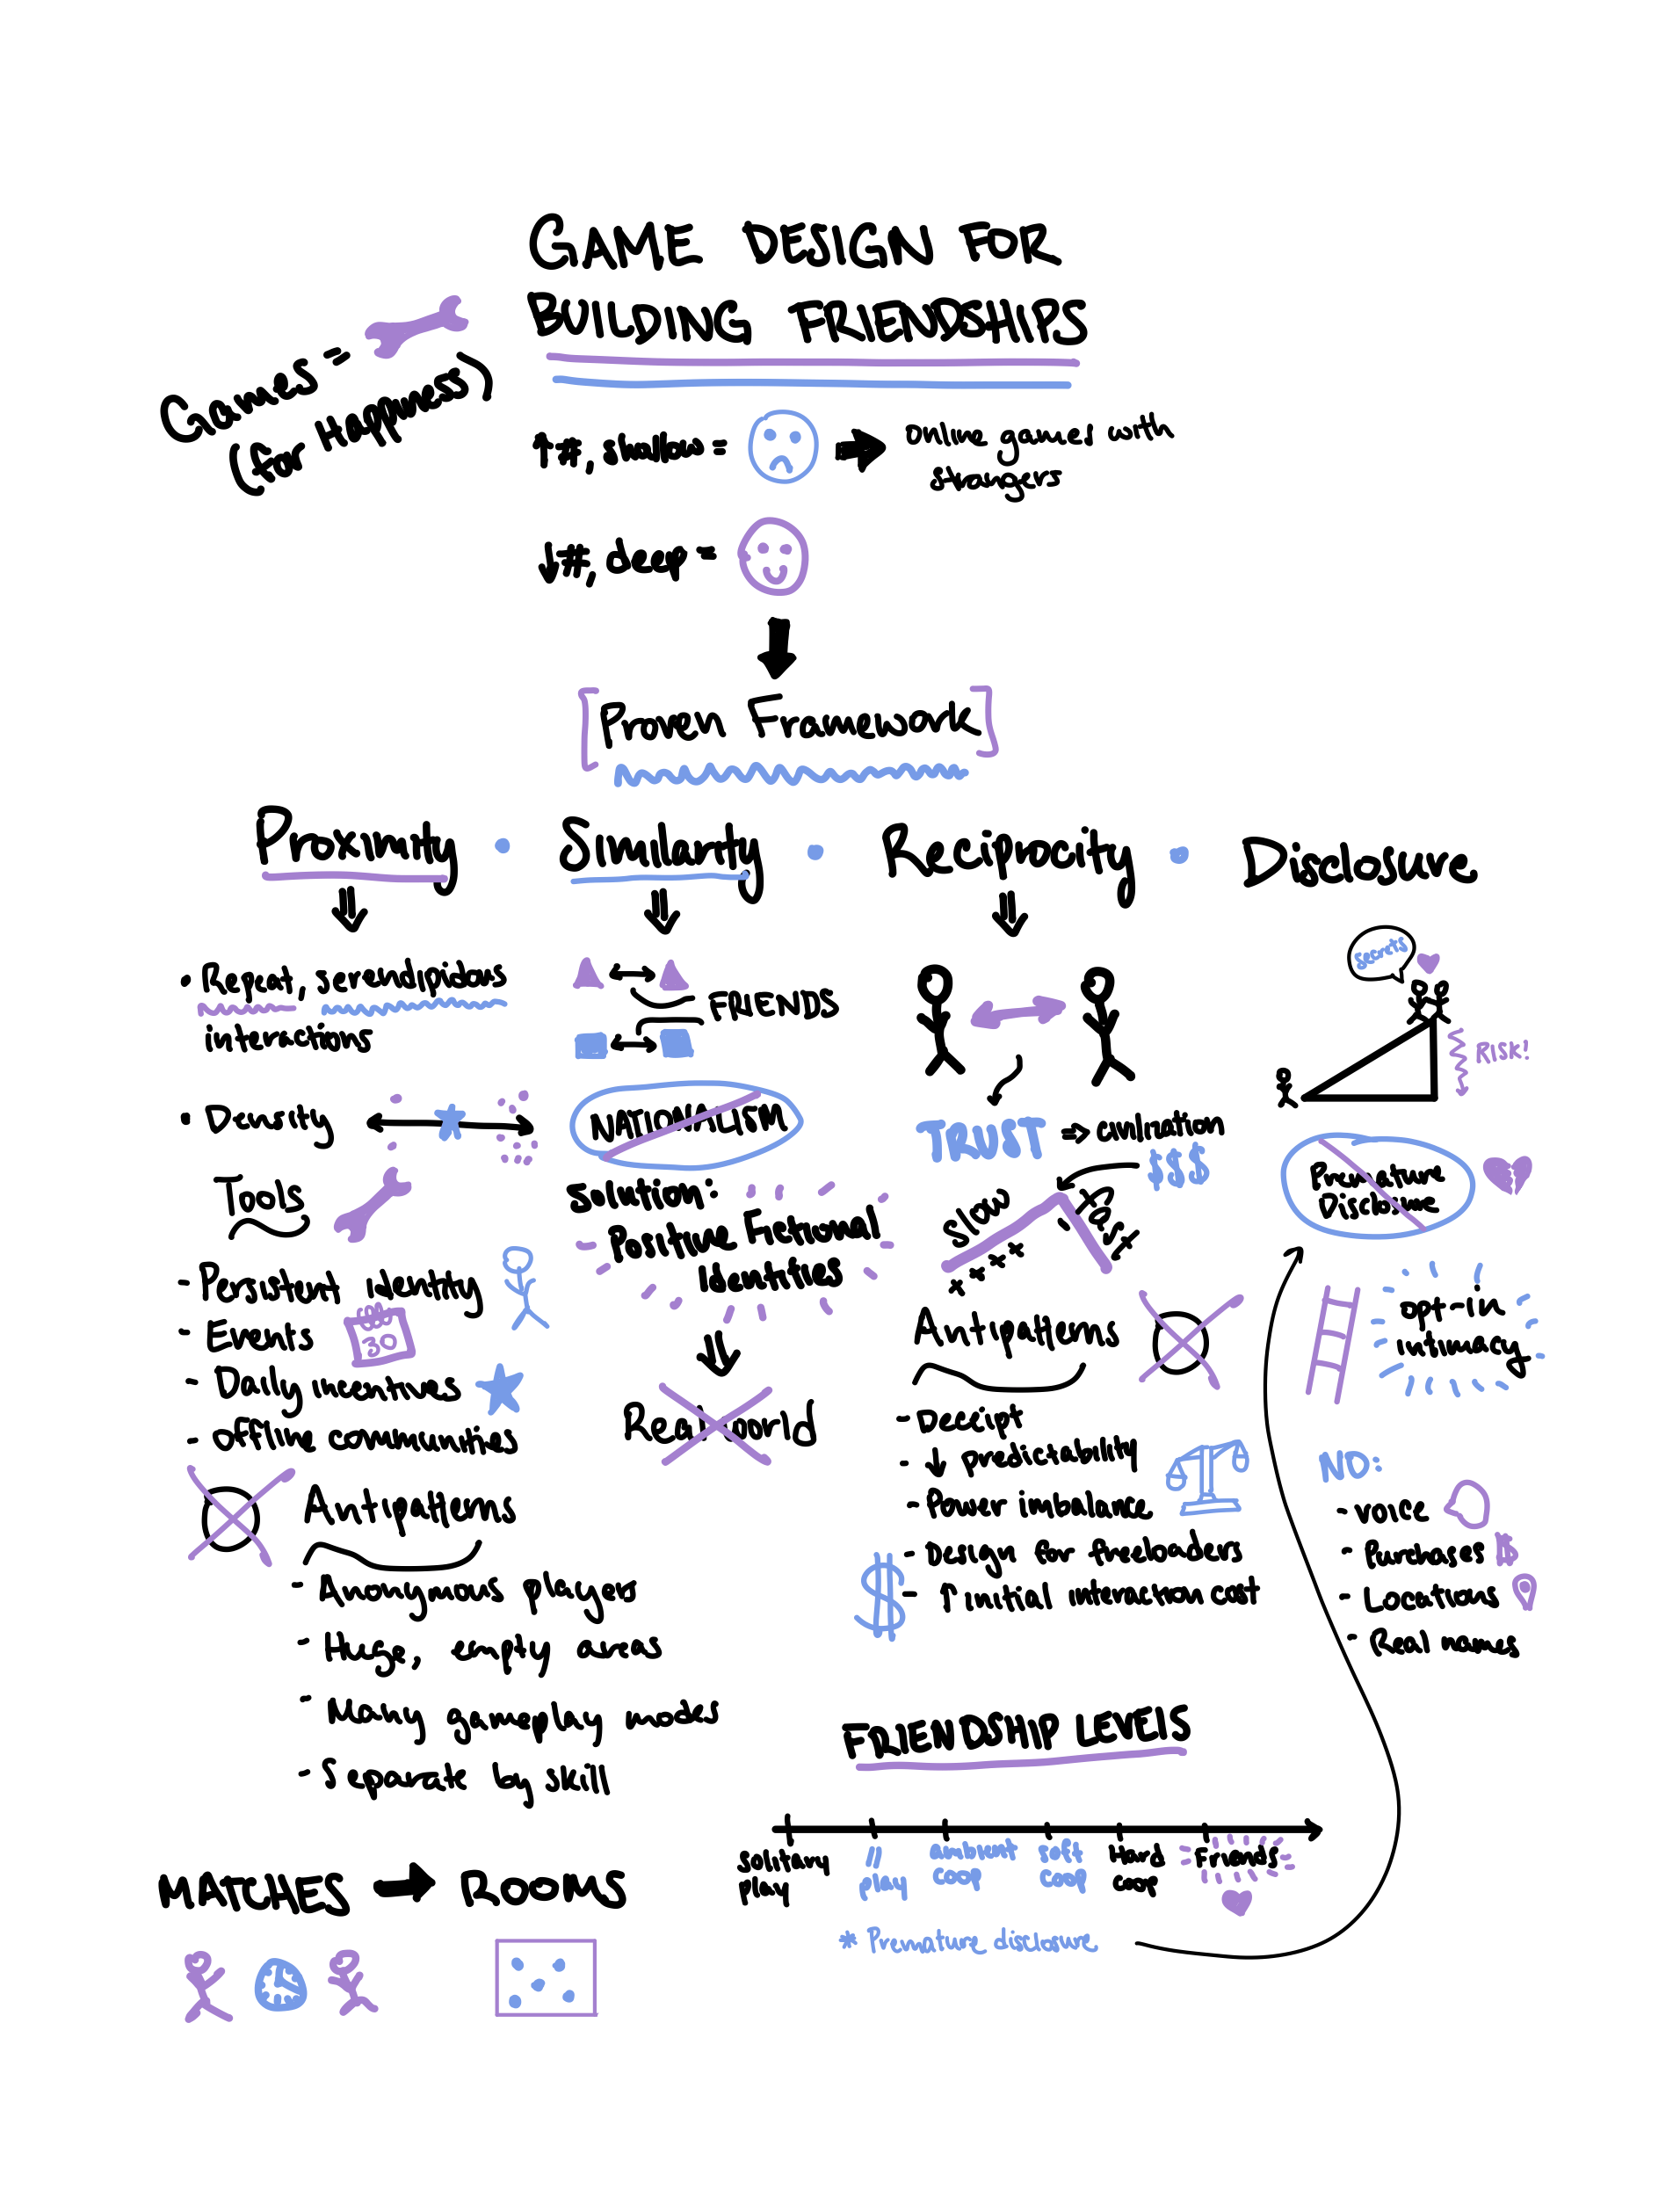 GAME DESIGN FOR
BUILDING FRIENDSHIPS
Games =
(for Happiness)
↑#, shallow =
online games with
strangers
↓#, deep =
[Proven Framework]
Proximity · Similarity · Reciprocity · Disclosure
• Repeat, serendipidous
interactions
• Density
Tools
- Persistent identity
- Events
30
- Daily incentives
- offline communities
Antipatterns
- Anonymous players
- Huge, empty areas
- Many gameplay modes
- Separate by skill
MATCHES → ROOMS
FRIENDS
NATIONALISM
Solution:
Positive Fictional
Identities
Real world
TRUST => civilization
$$$
Slow
fast
Antipatterns
- Deceipt
- ↓ predictability
- Power imbalance
- Design for freeloaders
- ↑ initial interaction cost
$
secrets
RISK!
Premature
Disclosure
opt-in
intimacy
NO:
- voice
- Purchases $
- Locations
- Real names
FRIENDSHIP LEVELS
solitary
play
//
play
ambient
coop
soft
coop
Hard
coop
Friends
* Premature disclosure